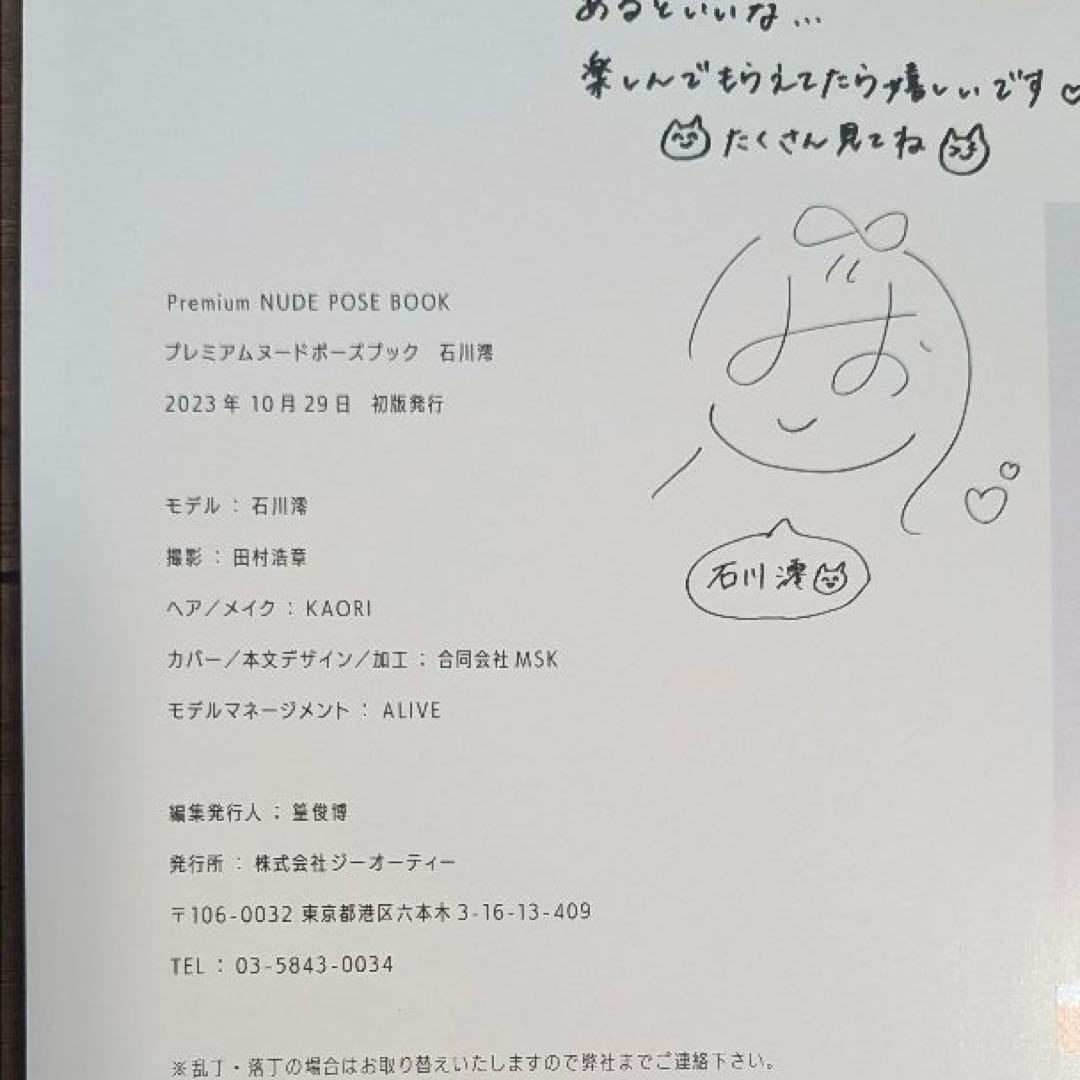 あるといいな...
楽しんでもらえてたら嬉しいです♡
たくさん見てね
みお
石川澪
Premium NUDE POSE BOOK
プレミアムヌードポーズブック 石川澪
2023年10月29日 初版発行
モデル：石川澪
撮影：田村浩章
ヘア／メイク：KAORI
カバー／本文デザイン／加工：合同会社MSK
モデルマネージメント：ALIVE
編集発行人：篁俊博
発行所：株式会社ジーオーティー
〒106-0032 東京都港区六本木3-16-13-409
TEL：03-5843-0034
※乱丁・落丁の場合はお取り替えいたしますので弊社までご連絡下さい。